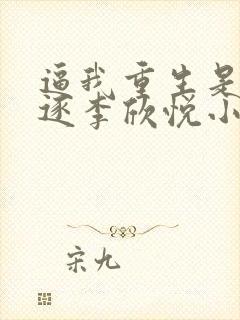 逼我重生是
逐李欣悦小
宋九